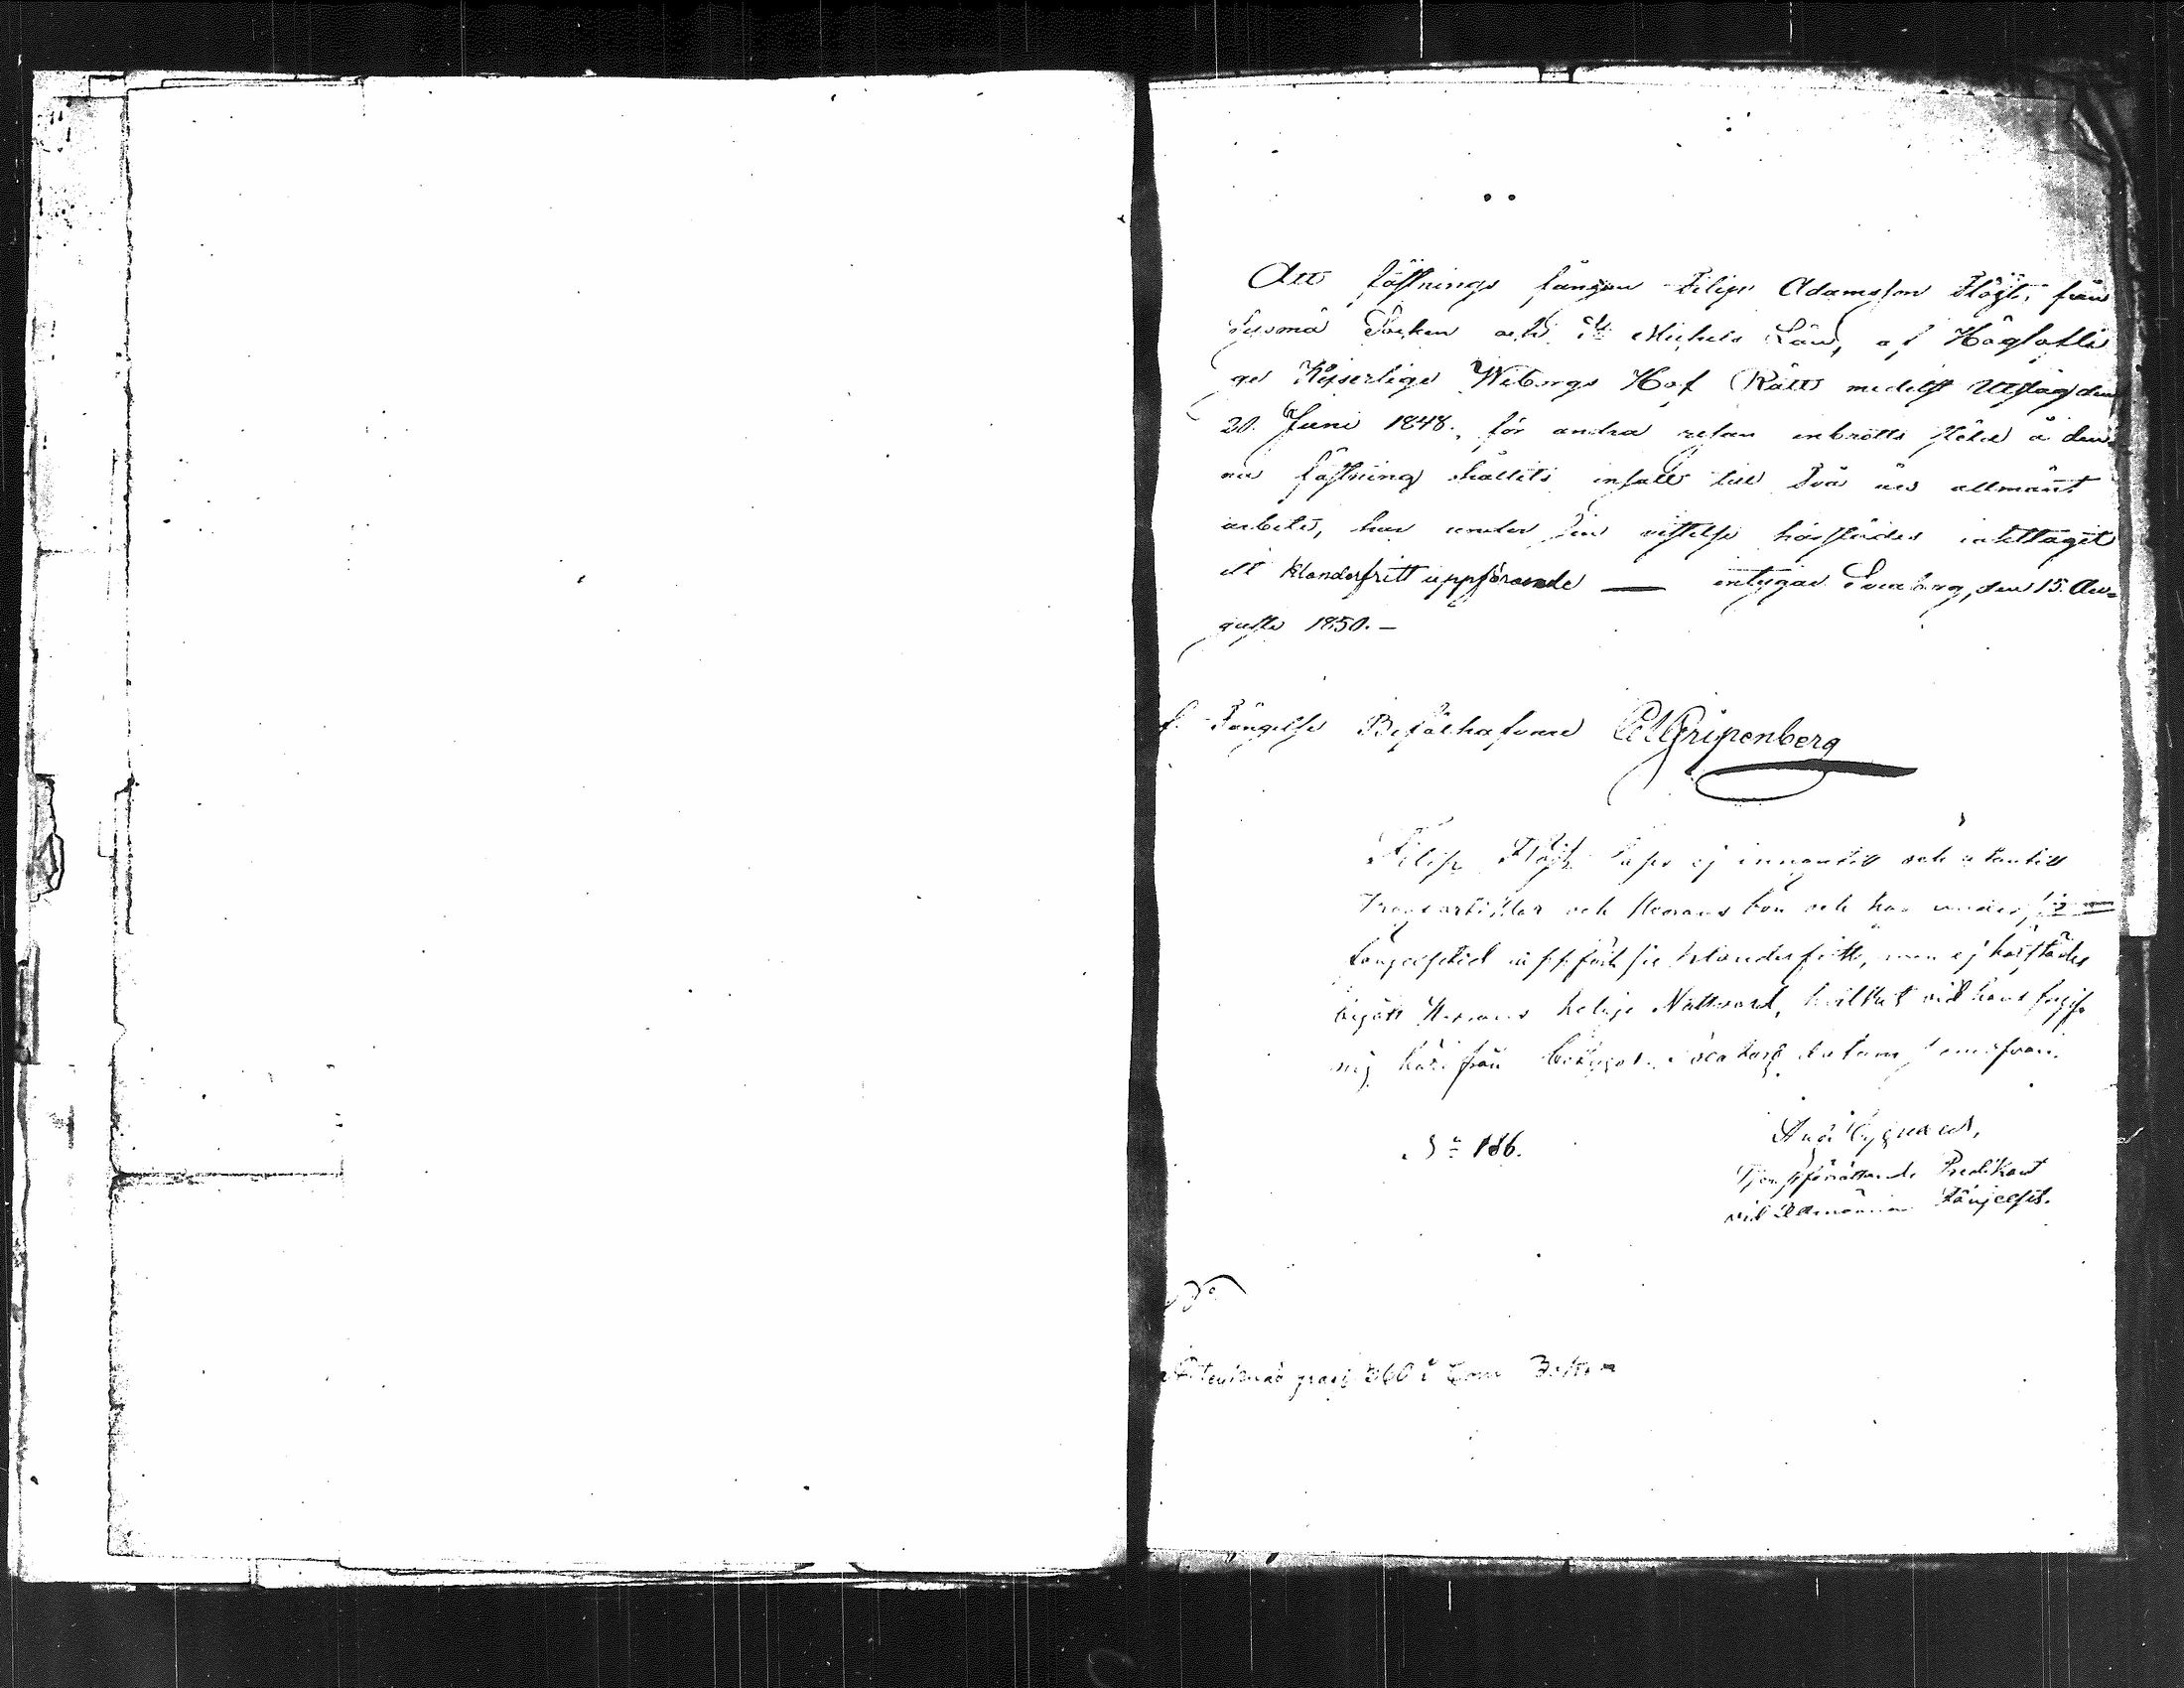 Att fästnings fången Filip Adamsson Flöjt, från
Socken och St Michels Län, af Höglofli
ge Kejserliga Wiborgs Hof Rätt medelst Utslag den
20. Juni 1848. för andra resan inbrotts stöld å den-
na fästning hållits insatt till Två års allmänt
arbete, har under sin vistelse härstädes iakttagit
ett klanderfritt uppförande — intygar Sveaborg, den 15. Au-
gusti 1850. —
f. Fängelse Befälhafvare Gripenberg
Filip Flöjt läser ej innantill och utantill
Trosartiklar och Herrans bön och har under sin
fängelsetid uppfört sig klanderfritt, men ej härstädes
begått Herrans heliga Nattvard, hvilket vid hans
härifrån betygar. Sveaborg datum som ofvan.
No 186.
Tjenstförrättande Predikant
vid Allmänna Fängelset.
pag 360 i